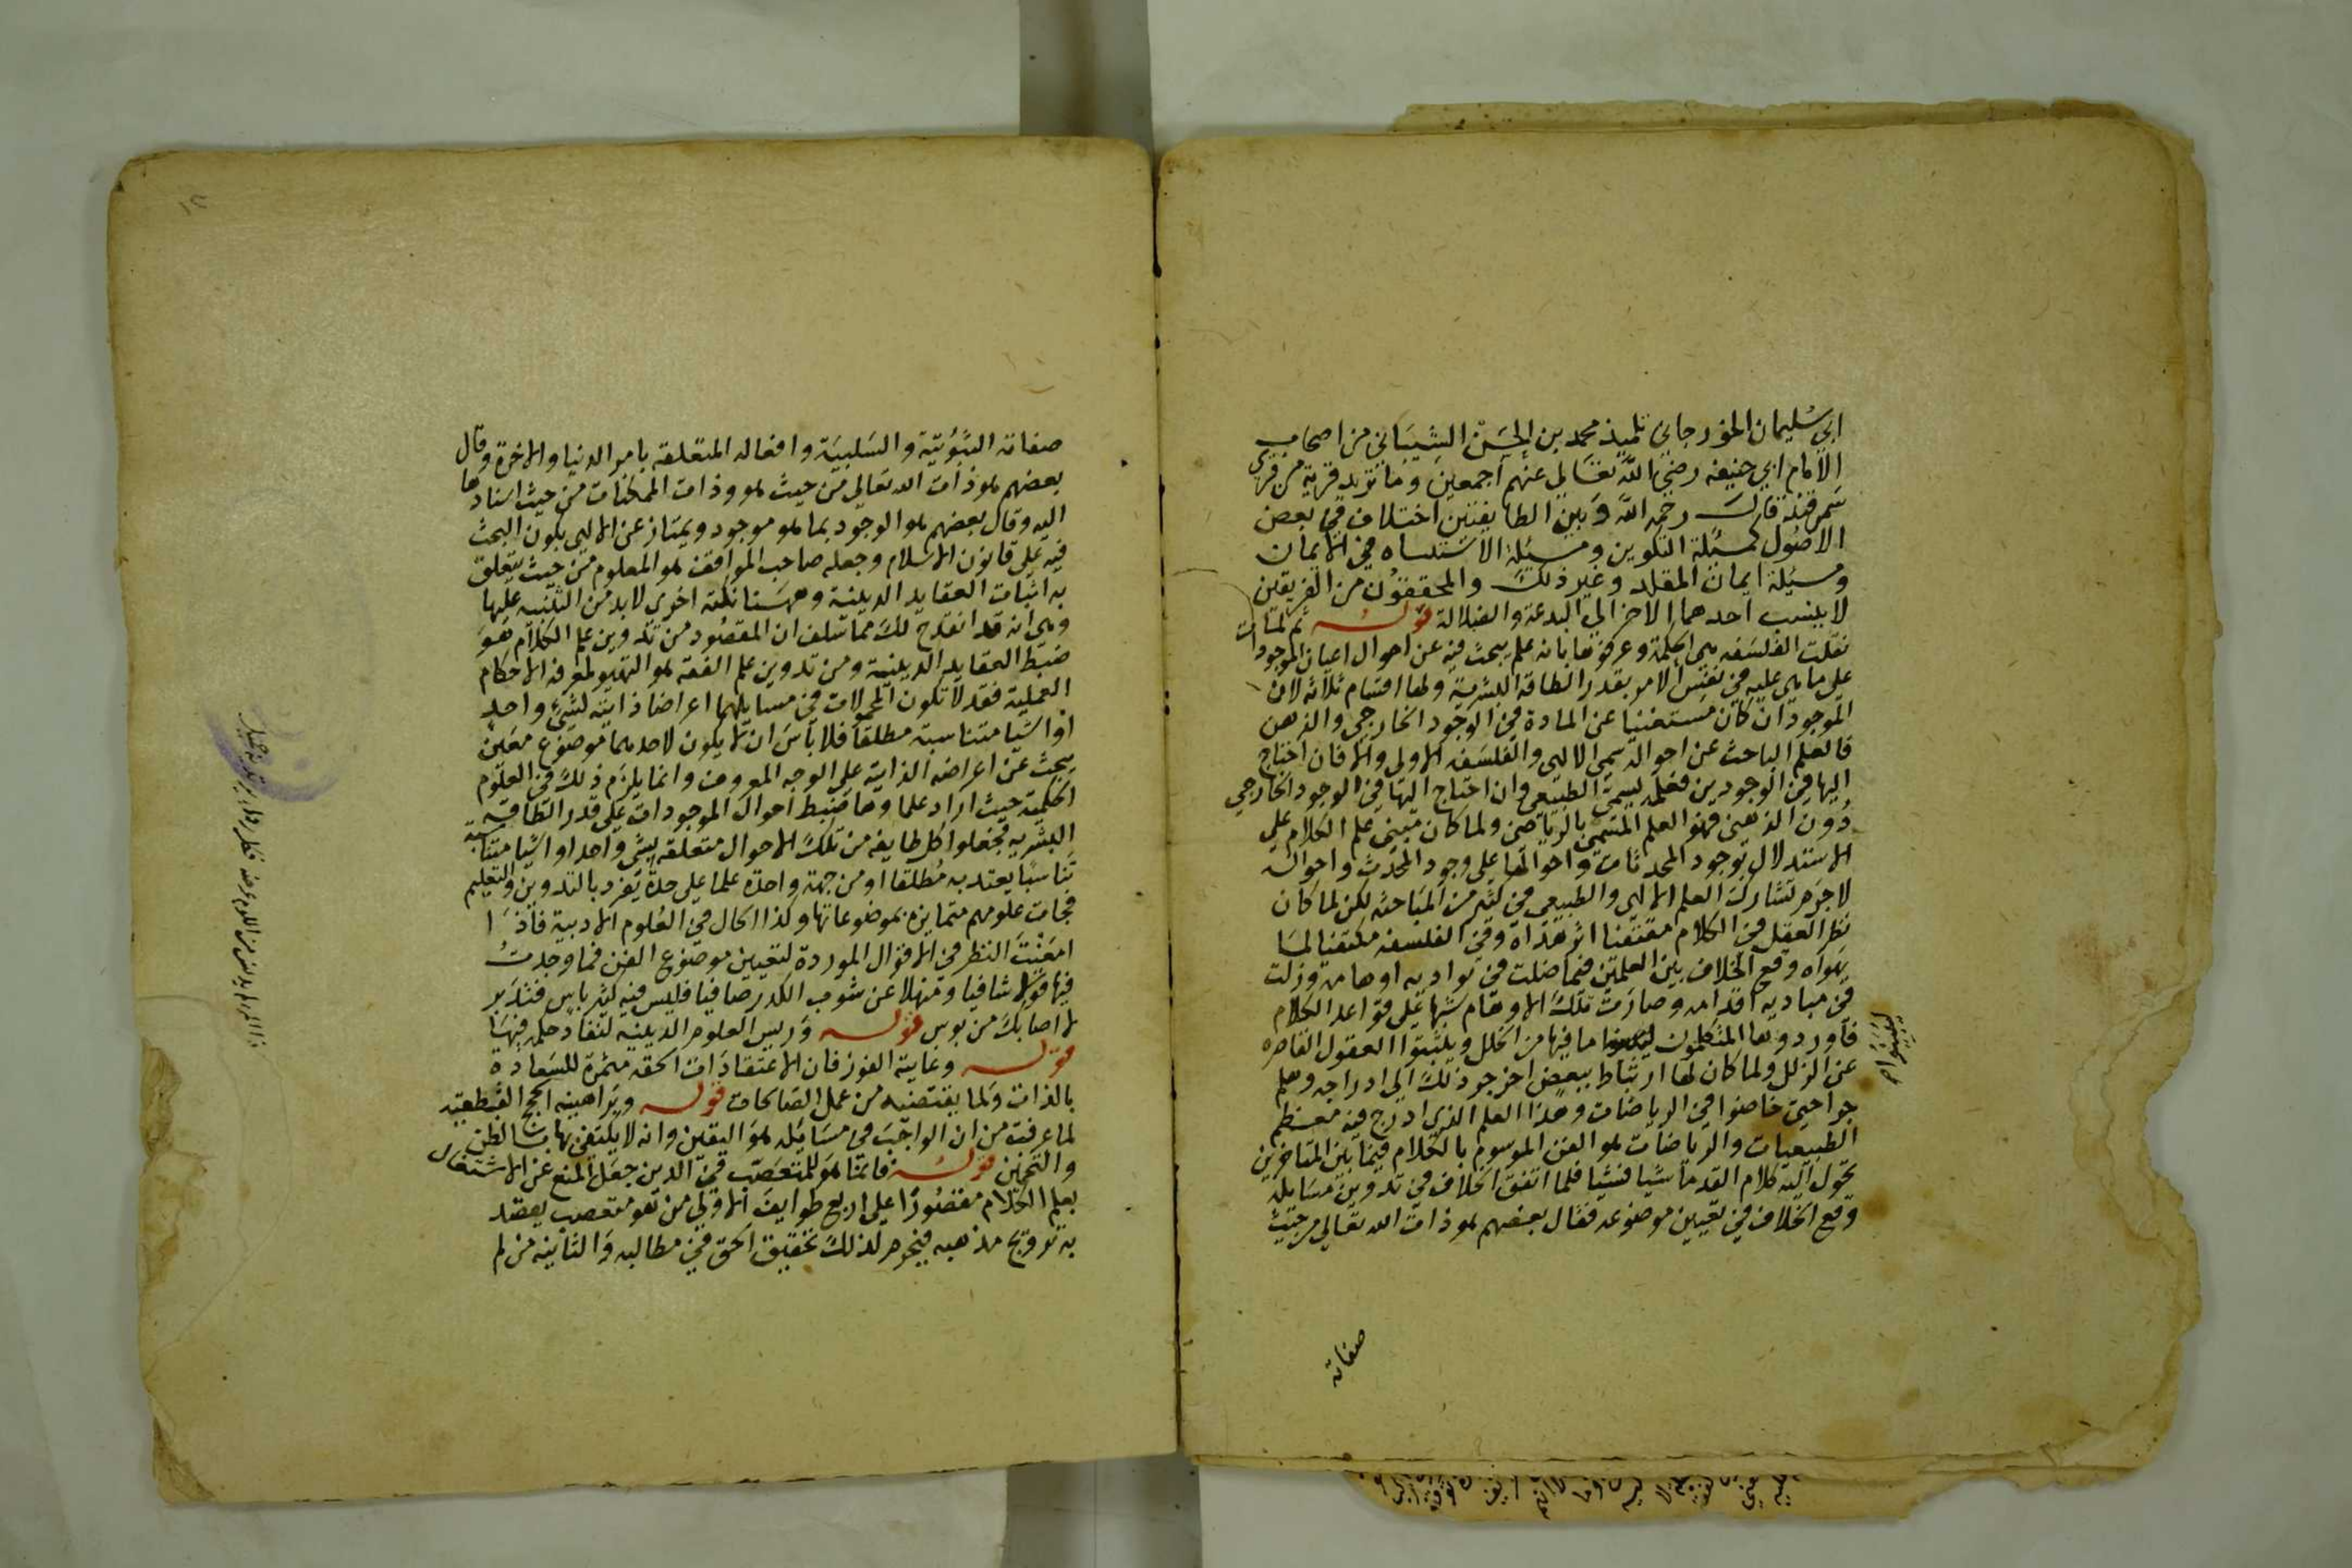 ابي سليمان الجوزجاني تلميذ محمد بن الحسن الشيباني من اصحاب
الامام ابي حنيفه رضي الله تعالى عنهم اجمعين وما تريد قرية من قري
سمرقند قال رحمه الله وبين الطايفتين اختلاف في بعض
الاصول كمسئلة التكوين ومسئلة الاستثناء في الايمان
ومسئلة ايمان المقلد وغير ذلك والمحققون من الفريقين
لا ينسب احدهما الاخر الي البدعة والضلالة قوله ثم لما
نقلت الفلسفه هي الحكمة وعرفوها بانه علم يبحث فيه عن احوال اعيان الموجودات
على ما هي عليه في نفس الامر بقدر الطاقة البشرية ولها اقسام ثلاثه لان
الموجود ان كان مستغنيا عن المادة في الوجود الخارجي والذهن
فالعلم الباحث عن احواله سمي الالهي والفلسفه الاولي والا فان احتاج
اليها في الوجودين فعلمه يسمي الطبيعي وان احتاج اليها في الوجود الخارجي
دون الذهني فهو العلم المسمي بالرياضي ولما كان مبني علم الكلام علي
الاستدلال بوجود المحدثات واحوالها علي وجود المحدث واحواله
لا جرم تشارك العلم الالهي والطبيعي في كثير من المباحثه لكن لما كان
نظر العقل في الكلام مقتفيا اثر هداه وفي الفلسفه مكتفيا لما
يهواه وقع الخلاف بين العلمين فيما ضلت في بواديه اوهامه وزلت
في مباديه اقدامه وصارت تلك الاوهام شبها علي قواعد الكلام
فاوردوها المتكلمون ما فيها من الخلل ويثبتوا العقول القاصره
ليبينوا
عن الزلل ولما كان لها ارتباط ببعض اخر جر ذلك الي ادراجه وهلم
جرا حين خاضوا في الرياضات وهذا العلم الذي ادرج فيه معظم
الطبيعيات والرياضات هو الفن الموسوم بالكلام فيما بين المتاخرين
تحول اليه كلام القدما شيا فشيا فلما اتفق الخلاف في تدوين مسايله
وقع الخلاف في تعيين موضوعه فقال بعضهم هو ذات الله تعالي من حيث
صفاته
صفاته الثبوتية والسلبية وافعاله المتعلقه بامر الدنيا والاخرة وقال
بعضهم هو ذات الله تعالي من حيث هو وذات الممكنات من حيث اسنادها
اليه وقال بعضهم هو الوجود بما هو موجود ويمتاز عن الالهي بكون البحث
فيه علي قانون الاسلام وجعله صاحب المواقف هو المعلوم من حيث يتعلق
به اثبات العقايد الدينية وههنا نكته اخري لا بد من التنبيه عليها
وهي انه قد انقدح لك مما سلف ان المقصود من تدوين علم الكلام هو
ضبط العقايد الدينية ومن تدوين علم الفقه هو التهيو لمعرفة الاحكام
العملية فقد لا تكون المحمولات في مسايلهما اعراضا ذاتيه لشئ واحد
او اشيا متناسبة مطلقا فلا باس ان لا يكون لاحدهما موضوع معين
يبحث عن اعراضه الذاتية علي الوجه المعروف وانما يلزم ذلك في العلوم
الحكمية حيث اراد علماوها ضبط احوال الموجودات علي قدر الطاقة
البشريه فجعلوا كل طايفه من تلك الاحوال متعلقه بشي واحد او اشيا متناسبة
تناسبا يعتد به مطلقا او من جهة واحدة علما علي حدة يفرد بالتدوين والتعليم
فجات علومهم متمايزه بموضوعاتها وكذا الحال في العلوم الادبية فاذا
امعنت النظر في الاقوال الموردة لتعيين موضوع الفن فما وجدت
فيها قولا شافيا ومنهلا عن شوب الكدر صافيا فليس فيه كثير باس فتدبر
لا اصابك من بوس قوله وريس العلوم الدينيه لنفاد حكمه فيها
قوله وغاية الفوز فان الاعتقادات الحقه مثمرة للسعادة
بالذات ولما يقتضيه من عمل الصالحات قوله وبراهينه الحجج القطعيه
لما عرفت من ان الواجب في مسايله هو اليقين وانه لا يكتفي بها بالظن
والتخمين قوله فانما هو للمتعصب في الدين جعل المنع عن الاشتغال
بعلم الكلام مقصورا علي اربع طوايف الاولي من هو متعصب يقصد
به ترويج مذهبه فيحرم لذلك تحقيق الحق في مطالبه والثانيه من لم